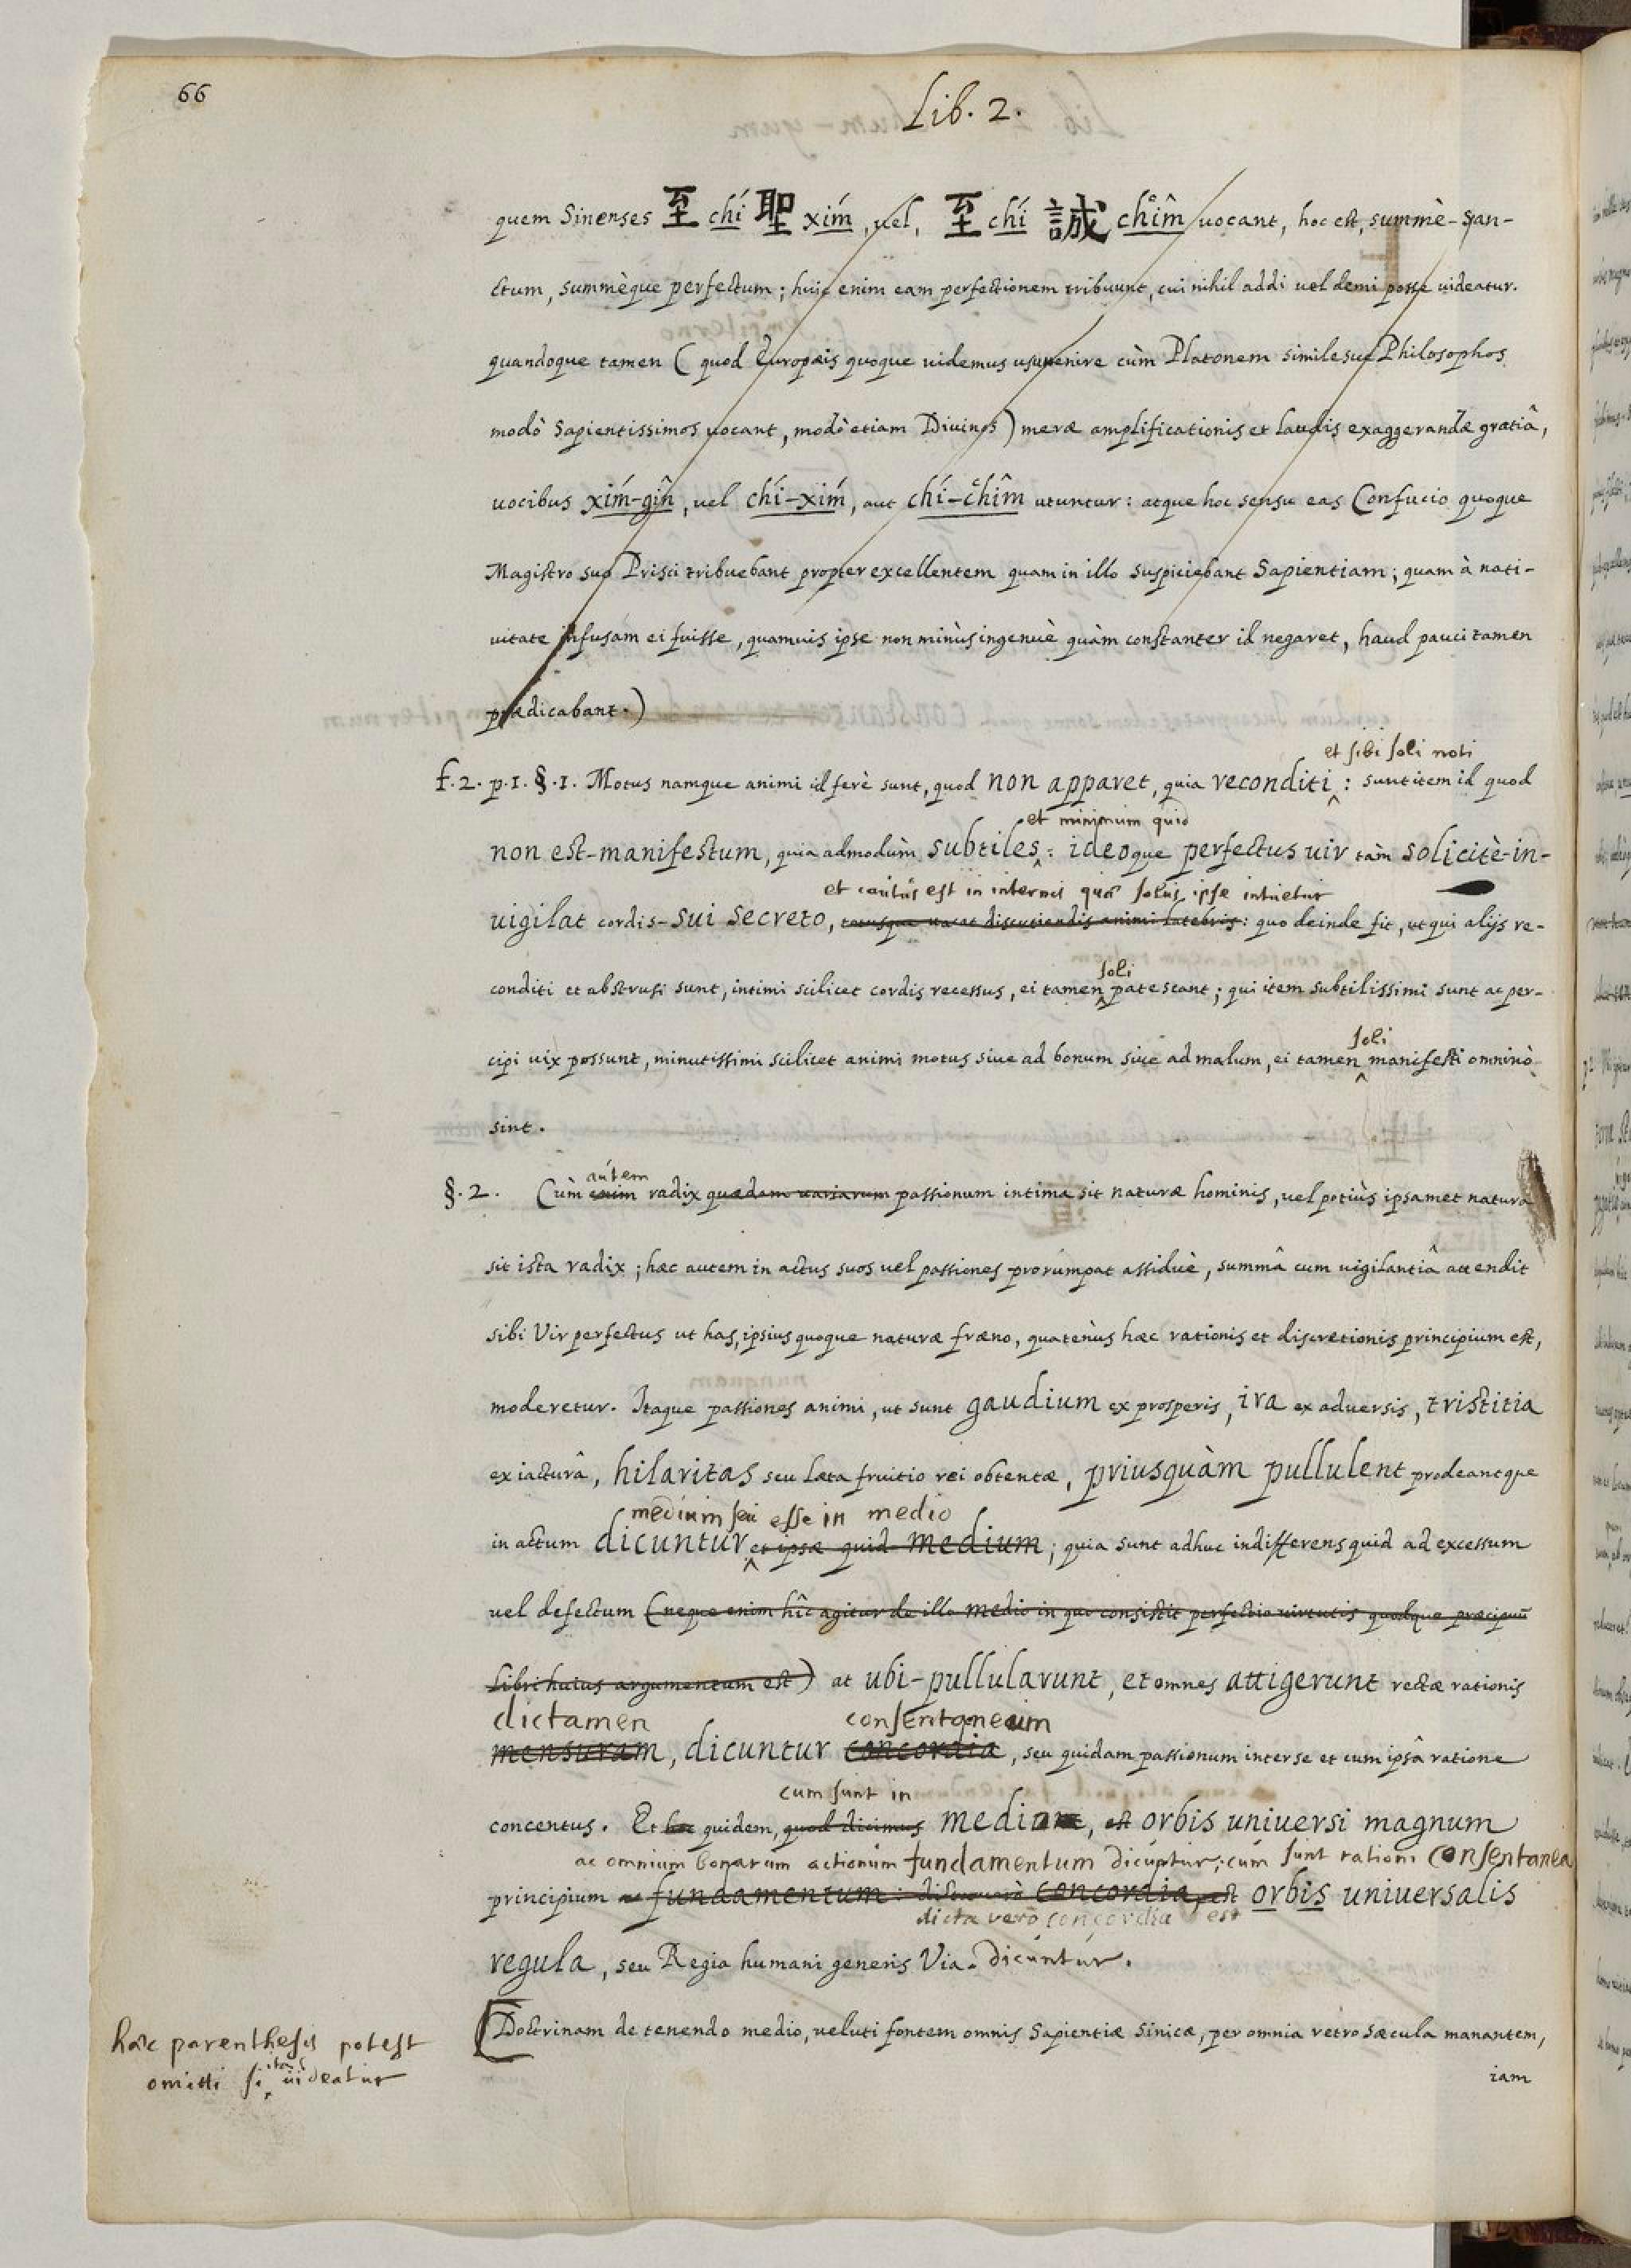 66
Lib. 2.
quem Sinenses 至 chí 聖 xím, vel, 至 chí 誠 chîm uocant, hoc est, summè-san-
ctum, summèque perfectum; huic enim eam perfectionem tribuunt, cui nihil addi uel demi posse uideatur.
quandoque tamen (quod Europæis quoque uidemus usuuenire cùm Platonem similesue Philosophos
modò Sapientissimos uocant, modò etiam Diuinos) meræ amplificationis et laudis exaggerandæ gratiâ,
uocibus xím-gîn, uel chí-xím, aut chí-chîm utuntur: atque hoc sensu eas Confucio quoque
Magistro suo Prisci tribuebant propter excellentem quam in illo suspiciebant Sapientiam; quam à nati-
uitate infusam ei fuisse, quamuis ipse non minùs ingenuè quàm constanter id negaret, haud pauci tamen
prædicabant.)
et sibi soli noti
f.2. p.1. §.1. Motus namque animi id ferè sunt, quod non apparet, quia reconditi‸: sunt item id quod
et minimum quid
non est-manifestum, quia admodùm subtiles‸: ideoque perfectus uir tàm solicitè-in-
et cautus est in internis quæ solus ipse intuetur
uigilat cordis-sui secreto, totusque uacat discutiendis animi latebris: quo deinde fit, ut qui alijs re-
soli
conditi et abstrusi sunt, intimi scilicet cordis recessus, ei tamen‸ patescant; qui item subtilissimi sunt ac per-
soli
cipi uix possunt, minutissimi scilicet animi motus siue ad bonum siue ad malum, ei tamen‸ manifesti omninò
sint.
autem
§.2. Cùm enim radix quædam uariarum passionum intima sit naturæ hominis, uel potiùs ipsamet natura
sit ista radix; hæc autem in actus suos uel passiones prorumpat assiduè, summâ cum uigilantiâ attendit
sibi Vir perfectus ut has, ipsius quoque naturæ fræno, quatenùs hæc rationis et discretionis principium est,
moderetur. Itaque passiones animi, ut sunt gaudium ex prosperis, ira ex aduersis, tristitia
ex iacturâ, hilaritas seu læta fruitio rei obtentæ, priusquàm pullulent prodeantque
medium seu esse in medio
in actum dicuntur‸ et ipsæ quid medium; quia sunt adhuc indifferens quid ad excessum
uel defectum (neque enim hîc agitur de illo medio in quo consistit perfectio uirtutis quodque præcipuū
Libri huius argumentum est) at ubi-pullularunt, et omnes attigerunt rectæ rationis
dictamen consentaneum
mensuram, dicuntur concordia, seu quidam passionum inter se et cum ipsâ ratione
cum sunt in
concentus. Et hoc quidem, quod dicimus medium, est orbis uniuersi magnum
ac omnium bonarum actionum fundamentum dicuntur; cùm sunt rationi consentanea
principium ac fundamentum: dicta verò concordia, est orbis uniuersalis
dicta verò concordia est
regula, seu Regia humani generis Via. dicuntur.
[Doctrinam de tenendo medio, ueluti fontem omnis Sapientiæ Sinicæ, per omnia retro sæcula manantem,
iam
hæc parenthesis potest
ita
omitti si‸ uideatur